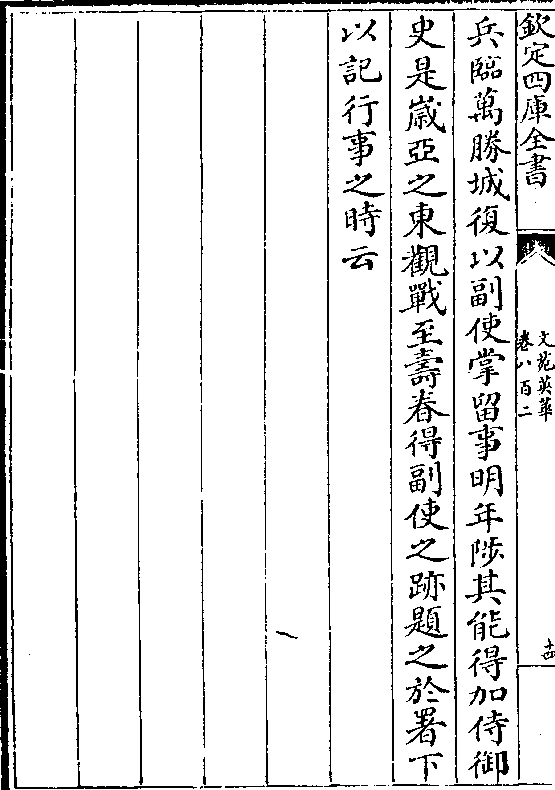 欽定四庫全書
文苑英華
卷八百二
十四
兵臨萬勝城復以副使掌留事明年陟其能得加侍御
史是嵗亞之東觀戰至壽春得副使之跡題之於署下
以記行事之時云